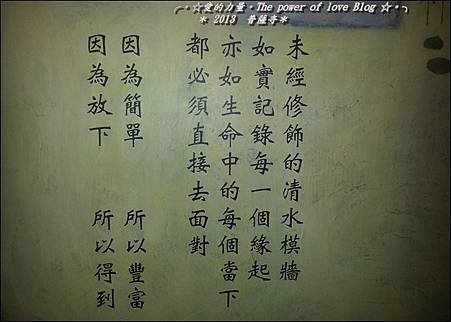 ☆愛的力量·The power of love Blog☆
* 2013 普薩寺*
未經修飾的清水模牆
如實記錄每一個緣起
亦如生命中的每個當下
都必須直接去面對
因為簡單 所以豐富
因為放下 所以得到